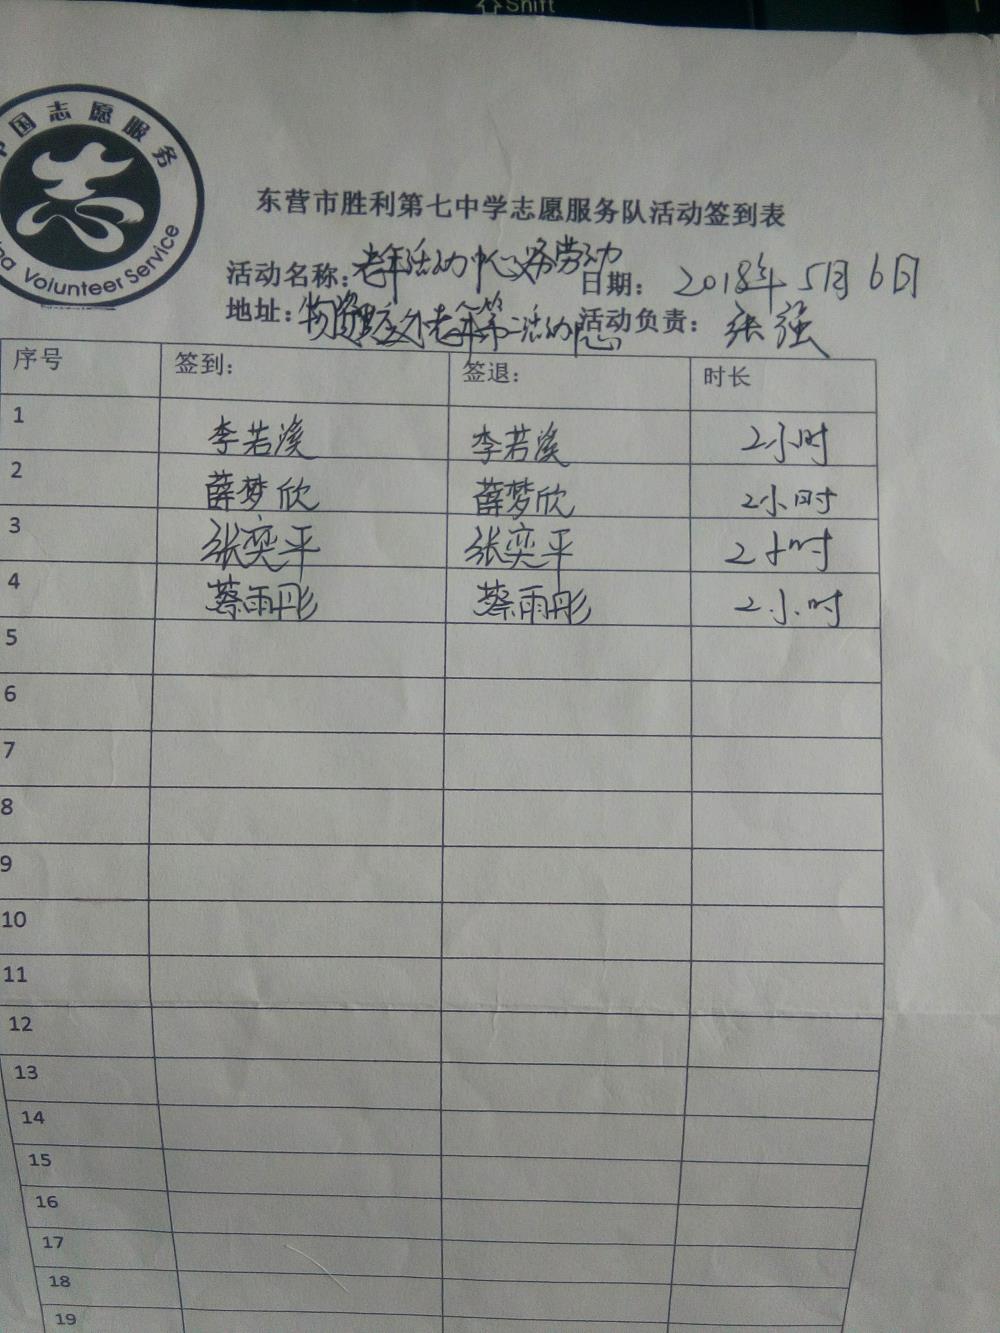 Shift
中国志愿服务
China Volunteer Service
东营市胜利第七中学志愿服务队活动签到表
活动名称：老年活动中心义务劳动 日期：2018年5月6日
地址： 老年第二活动中心 活动负责：张强
序号 签到： 签退： 时长
1 李若溪 李若溪 2小时
2 薛梦欣 薛梦欣 2小时
3 张奕平 张奕平 2小时
4 蔡雨彤 蔡雨彤 2小时
5
6
7
8
9
10
11
12
13
14
15
16
17
18
19